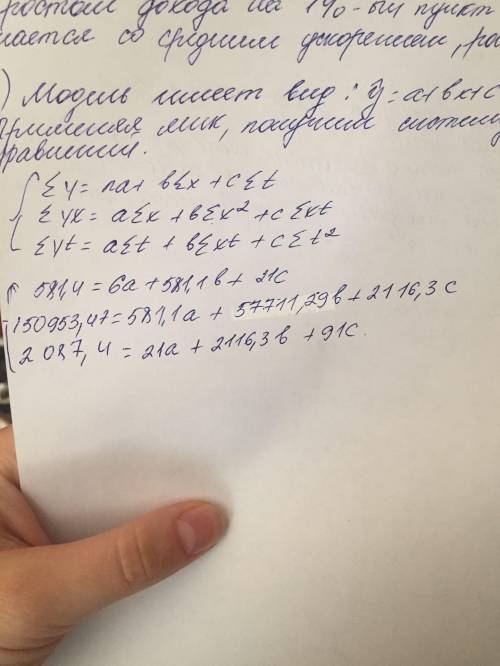 ростом дохода на 1%-ый пункт
чается со средним ускорением,
) Модель имеет вид: ŷ=a+bx+c
Применяя МНК, получим систему
уравнений.
Σy = na + bΣx + cΣt
Σyx = aΣx + bΣx² + cΣxt
Σyt = aΣt + bΣxt + cΣt²
581,4 = 6a + 581,1b + 21c
150953,47 = 581,1a + 57711,29b + 2116,3c
2087,4 = 21a + 2116,3b + 91c.